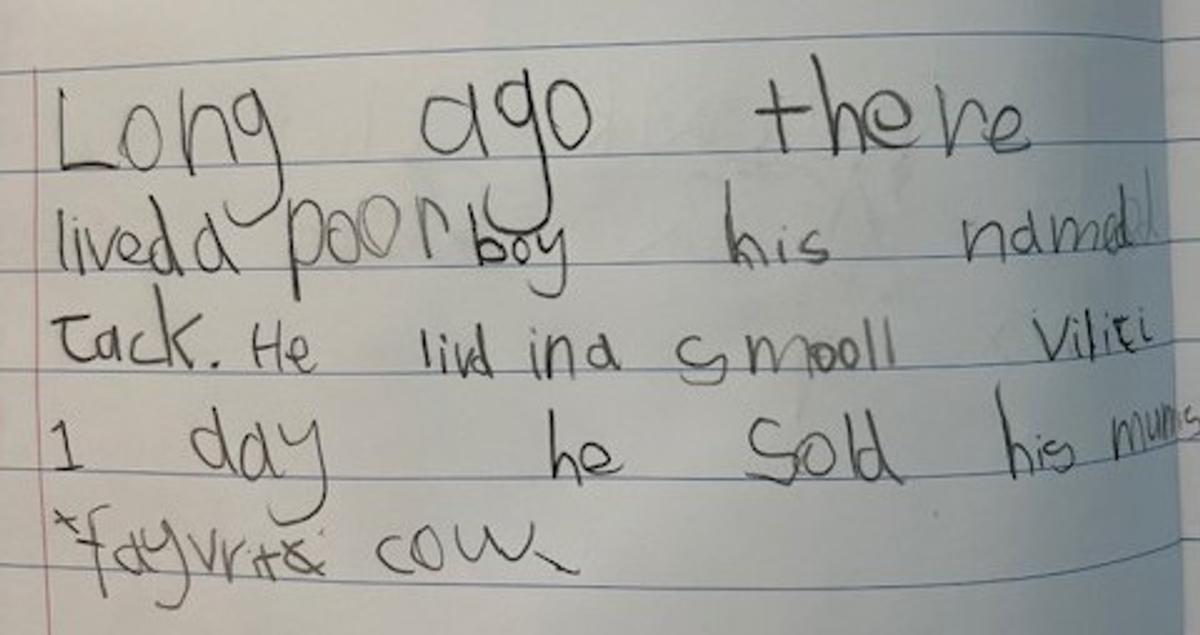 Long ago there
lived a poor boy his namd
Tack. He livd in a smooll
1 day he sold his mums
fayvrite cow